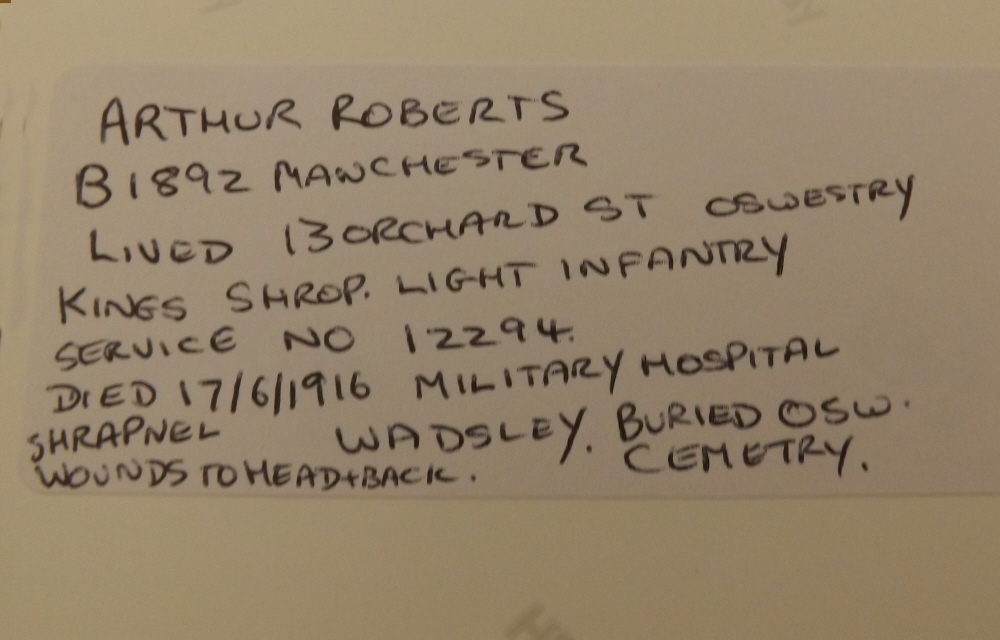 ARTHUR ROBERTS
B1892 MANCHESTER
LIVED 13 ORCHARD ST OSWESTRY
KINGS SHROP. LIGHT INFANTRY
SERVICE NO 12294.
DIED 17/6/1916 MILITARY HOSPITAL
SHRAPNEL WADSLEY. BURIED OSW.
WOUNDS TO HEAD+BACK. CEMETRY.